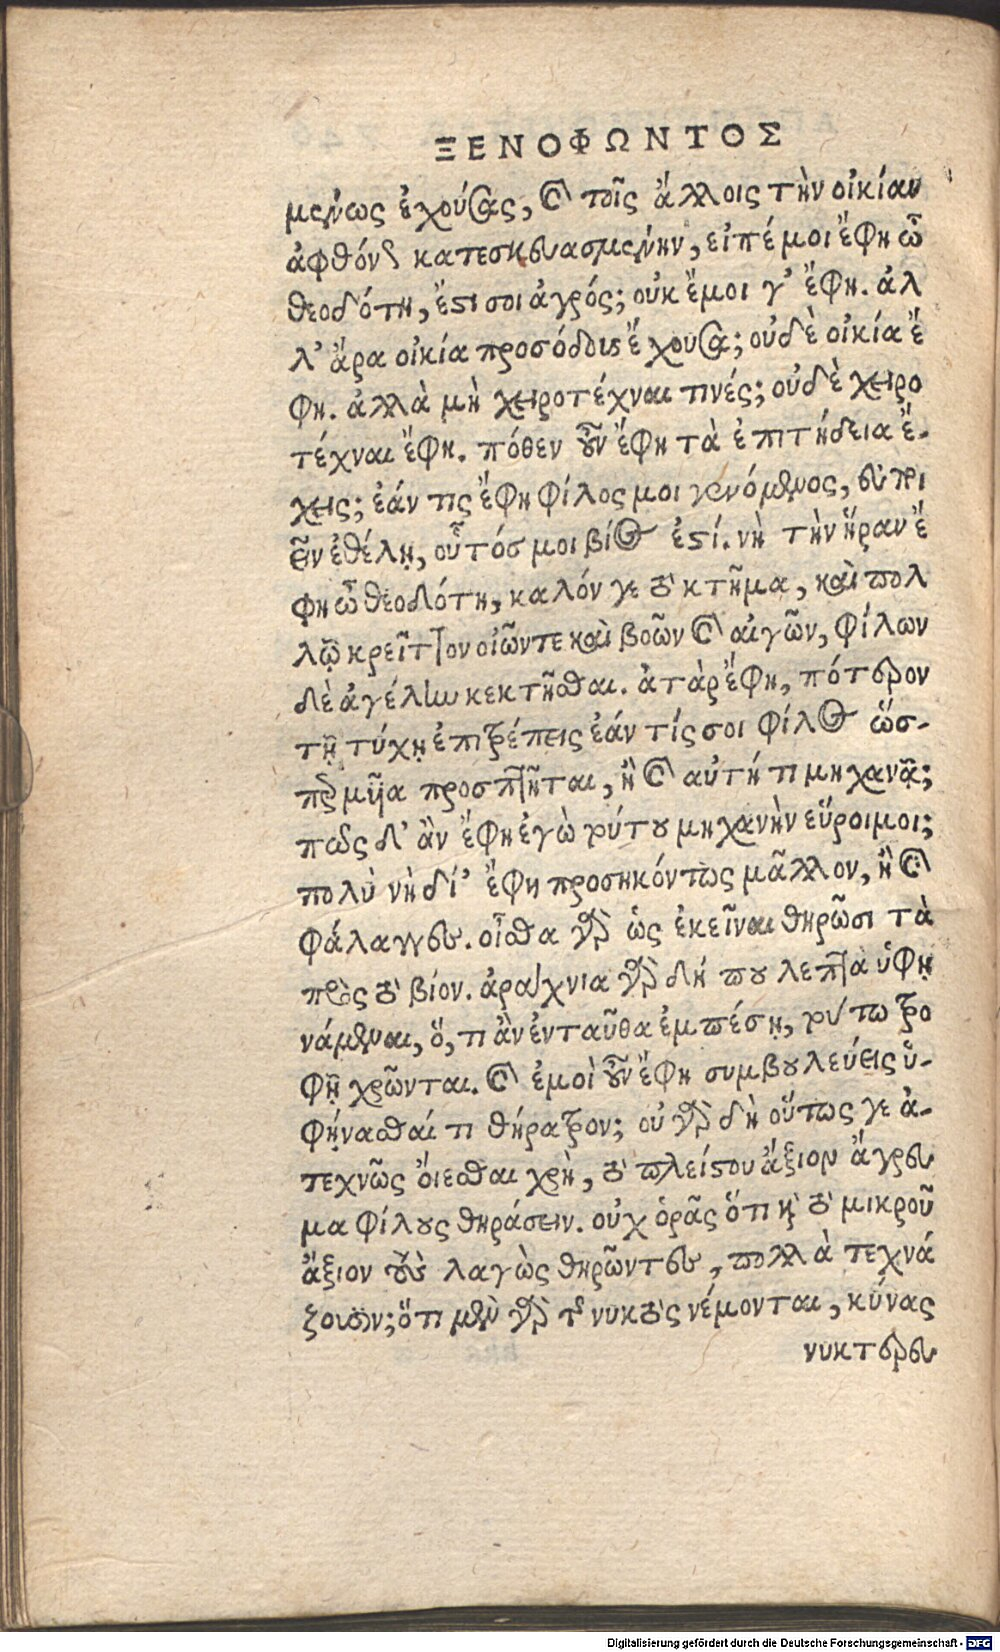 ΞΕΝΟΦΩΝΤΟΣ
μένως ἐχούσας, καὶ τοῖς ἄλλοις τὴν οἰκίαν
ἀφθόνως κατεσκευασμένην, εἰπέ μοι ἔφη ὦ
θεοδότη, ἔστι σοι ἀγρός; οὐκ ἔμοι γ' ἔφη. ἀλ
λ' ἄρα οἰκία προσόδους ἔχουσα; οὐδὲ οἰκία ἔ
φη. ἀλλὰ μὴ χειροτέχναι τινές; οὐδὲ χειρο
τέχναι ἔφη. πόθεν οὖν ἔφη τὰ ἐπιτήδεια ἔ-
χεις; ἐάν τις ἔφη φίλος μοι γενόμενος, εὖ ποι
εῖν ἐθέλῃ, οὗτός μοι βίος ἐστί. νὴ τὴν ἥραν ἔ
φη ὦ θεοδότη, καλόν γε τὸ κτῆμα, καὶ πολ
λῷ κρεῖττον οἰῶν τε καὶ βοῶν καὶ αἰγῶν, φίλων
δὲ ἀγέλην κεκτῆσθαι. ἀτὰρ ἔφη, πότερον
τῇ τύχῃ ἐπιτρέπεις ἐάν τίς σοι φίλος ὥσ-
περ μυῖα προσπτῆται, ἢ καὶ αὐτή τι μηχανᾷ;
πῶς δ' ἂν ἔφη ἐγὼ τούτου μηχανὴν εὕροιμι;
πολὺ νὴ δί' ἔφη προσηκόντως μᾶλλον, ἢ αἱ
φάλαγγες. οἶσθα γὰρ ὡς ἐκεῖναι θηρῶσι τὰ
πρὸς τὸν βίον. ἀράχνια γὰρ δή που λεπτὰ ὑφη
νάμεναι, ὅ, τι ἂν ἐνταῦθα ἐμπέσῃ, τούτῳ τρο
φῇ χρῶνται. καὶ ἐμοὶ οὖν ἔφη συμβουλεύεις ὑ-
φήνασθαί τι θήρατρον; οὐ γὰρ δὴ οὕτως γε ἀ-
τεχνῶς οἴεσθαι χρὴ, τὸ πλείστου ἄξιον ἄγρευ
μα φίλους θηράσειν. οὐχ ὁρᾷς ὅτι καὶ τὸ μικροῦ
ἄξιον τοὺς λαγὼς θηρῶντες, πολλὰ τεχνά
ζουσιν; ὅτι μὲν γὰρ τῆς νυκτὸς νέμονται, κύνας
νυκτερευ